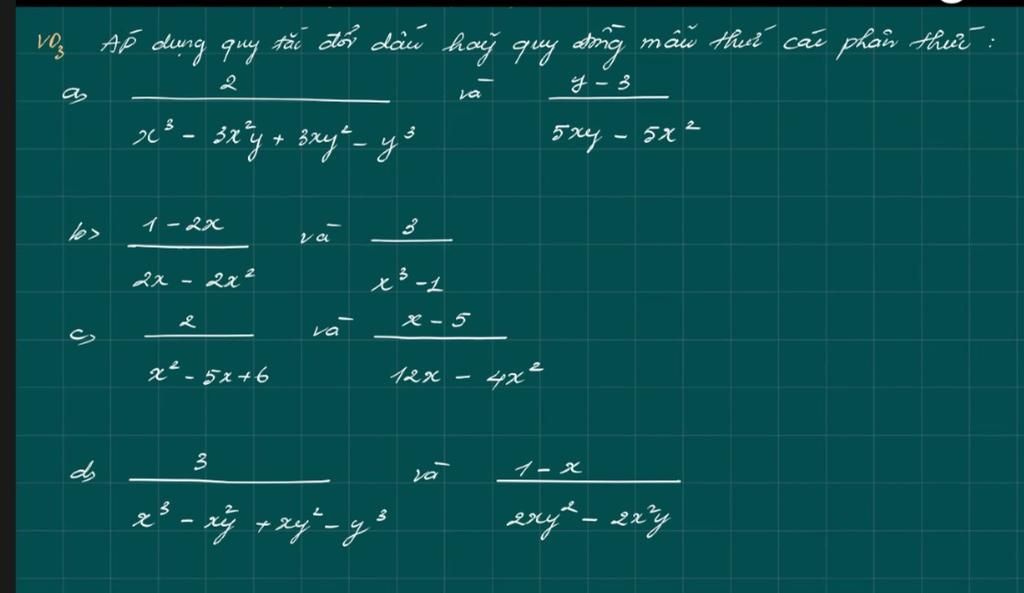 VD₃ Áp dụng quy tắc đổi dấu hãy quy đồng mẫu thức các phân thức :
a, 2 / (x³ - 3x²y + 3xy² - y³) và (y - 3) / (5xy - 5x²)
b> (1 - 2x) / (2x - 2x²) và 3 / (x³ - 1)
c, 2 / (x² - 5x + 6) và (x - 5) / (12x - 4x²)
d, 3 / (x³ - xy² + xy² - y³) và (1 - x) / (2xy² - 2x²y)